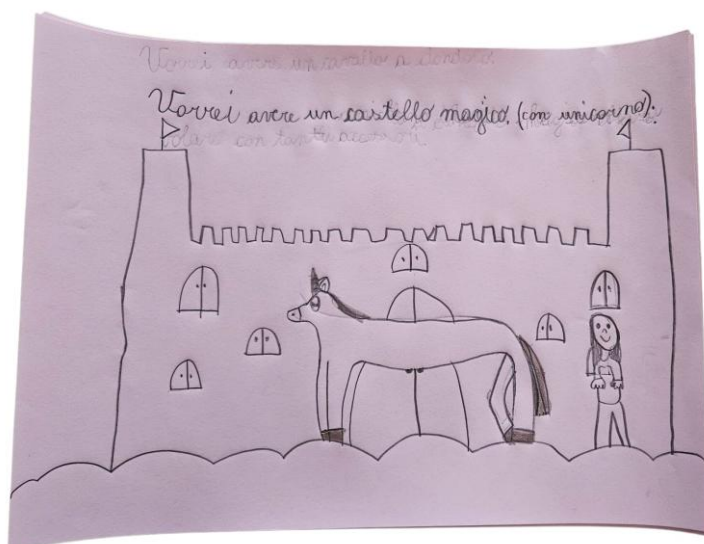 Vorrei avere un cavallo a dondolo
Vorrei avere un castello magico. (con unicorno).
volare con tanti accessori